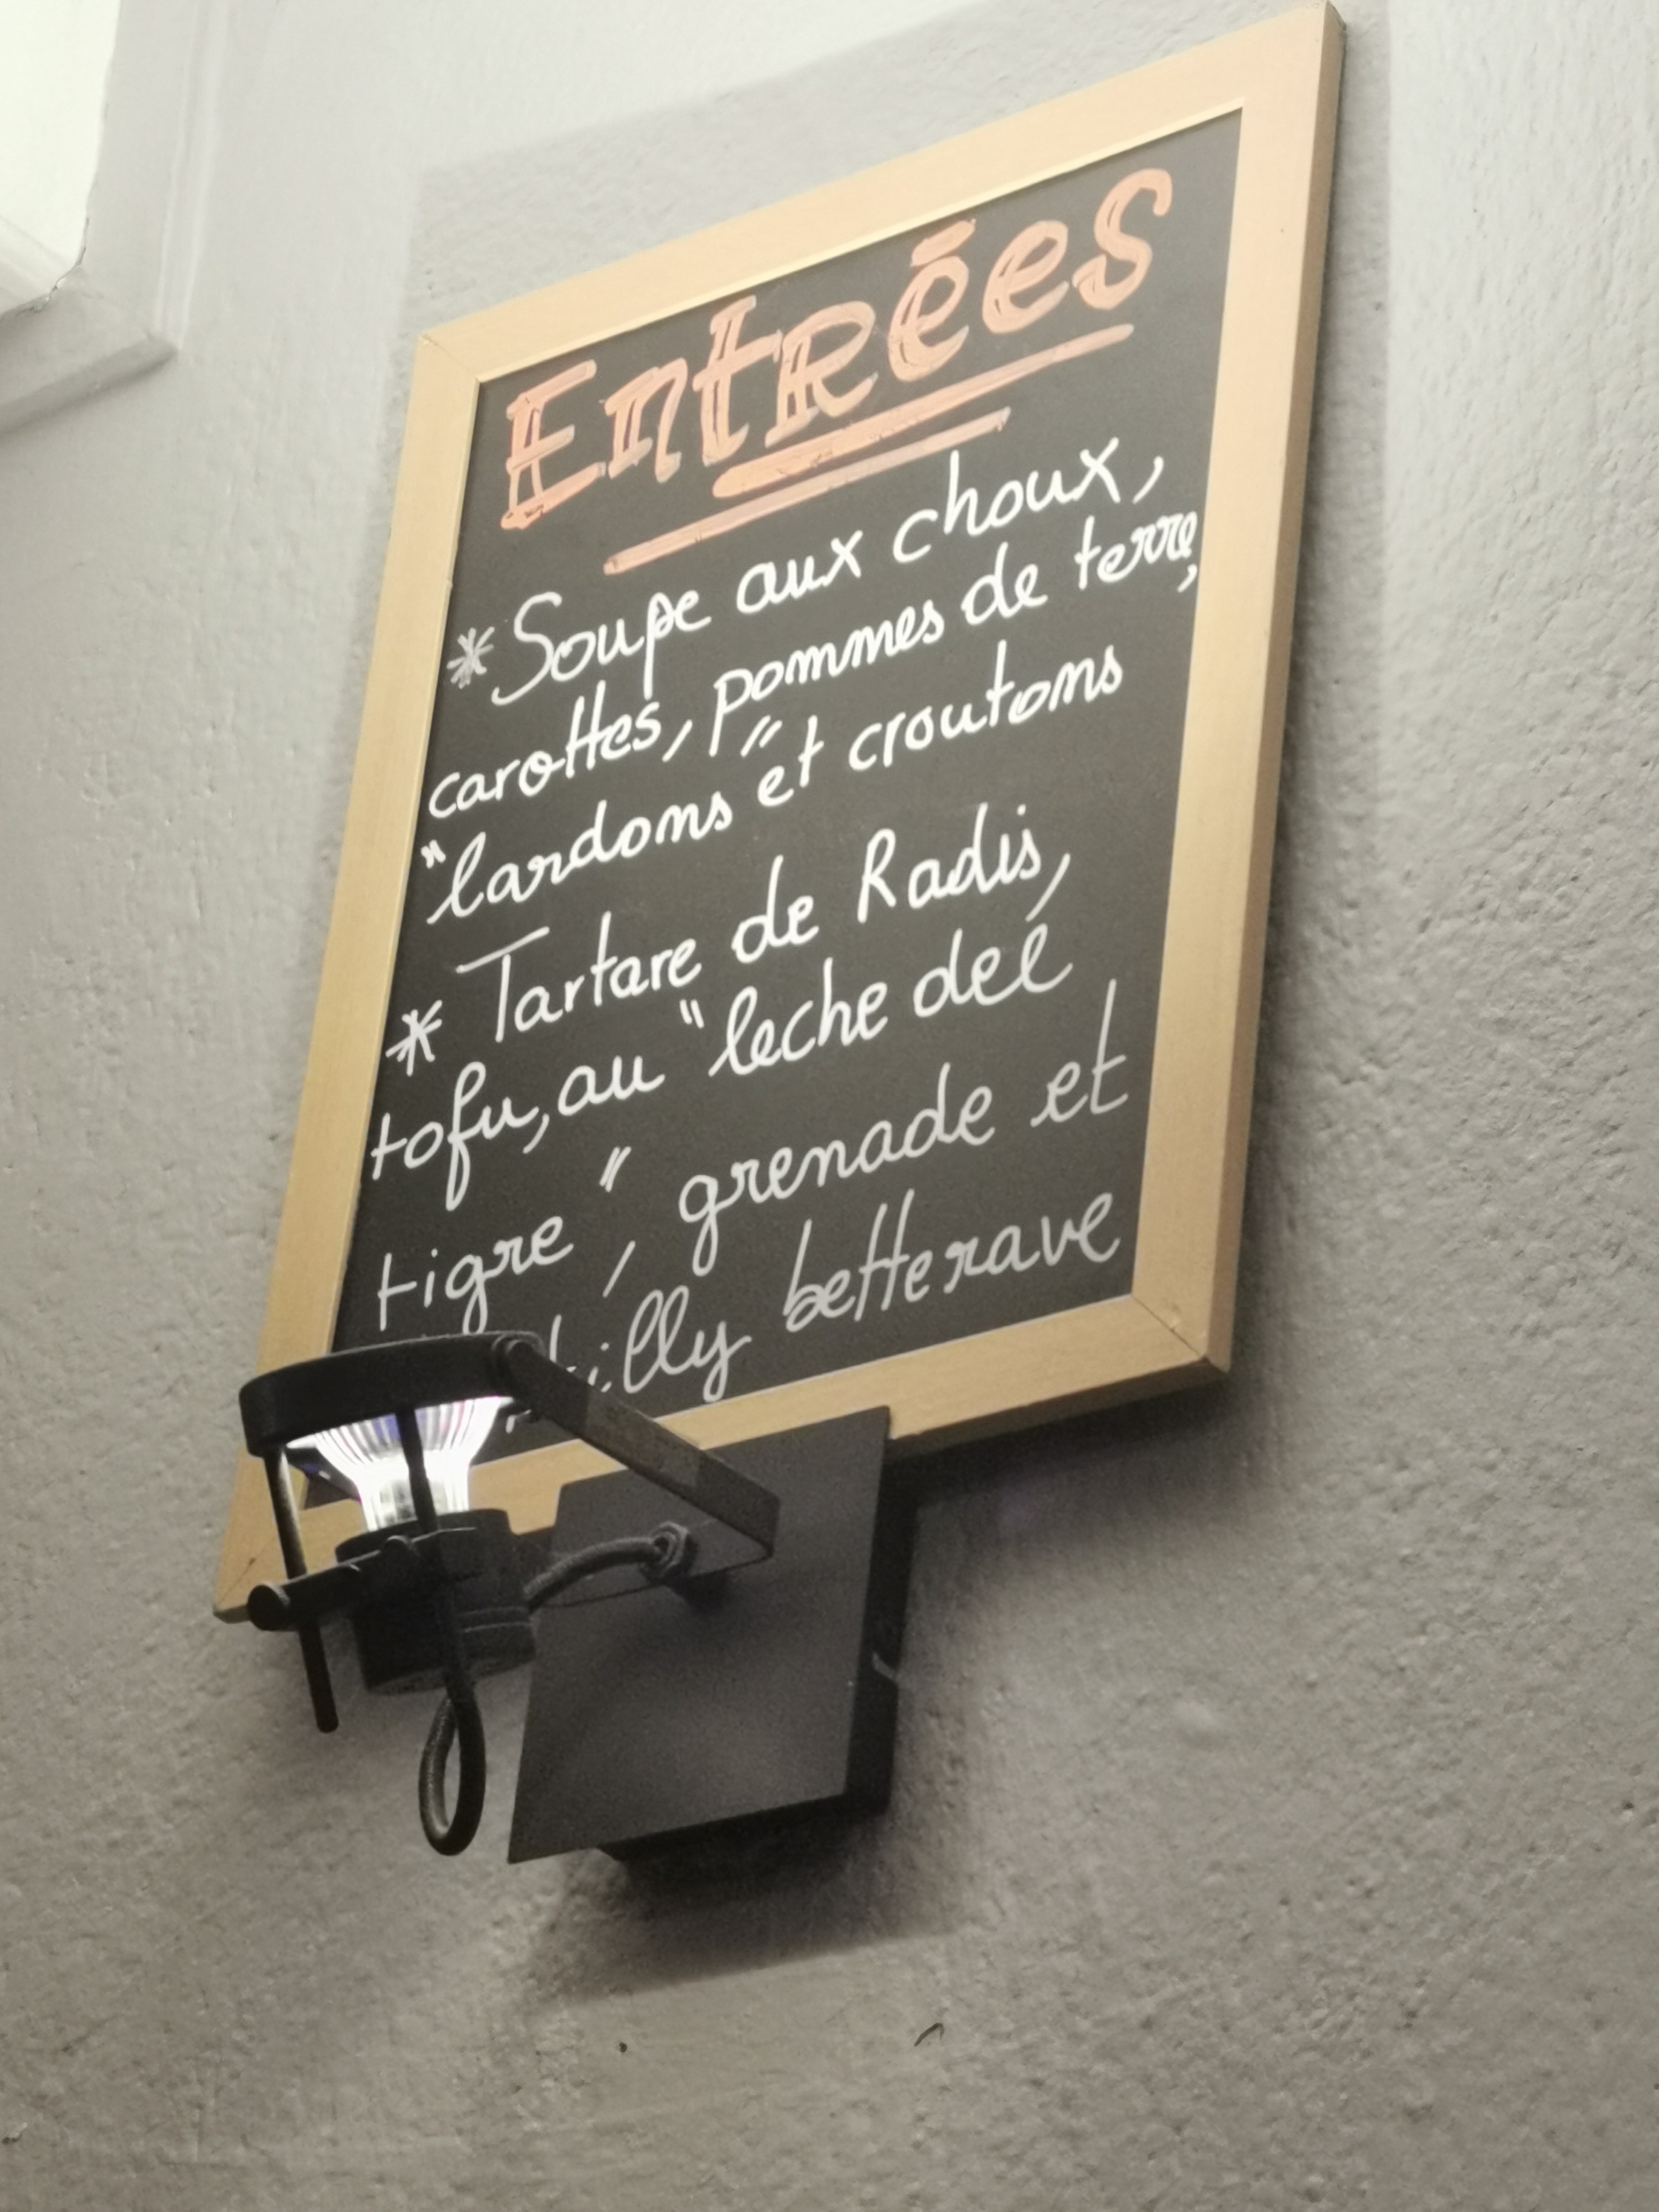 Entrées
* Soupe aux choux,
carottes, pommes de terre,
"lardons" et croutons
* Tartare de Radis,
tofu, au "leche del
tigre", grenade et
betterave